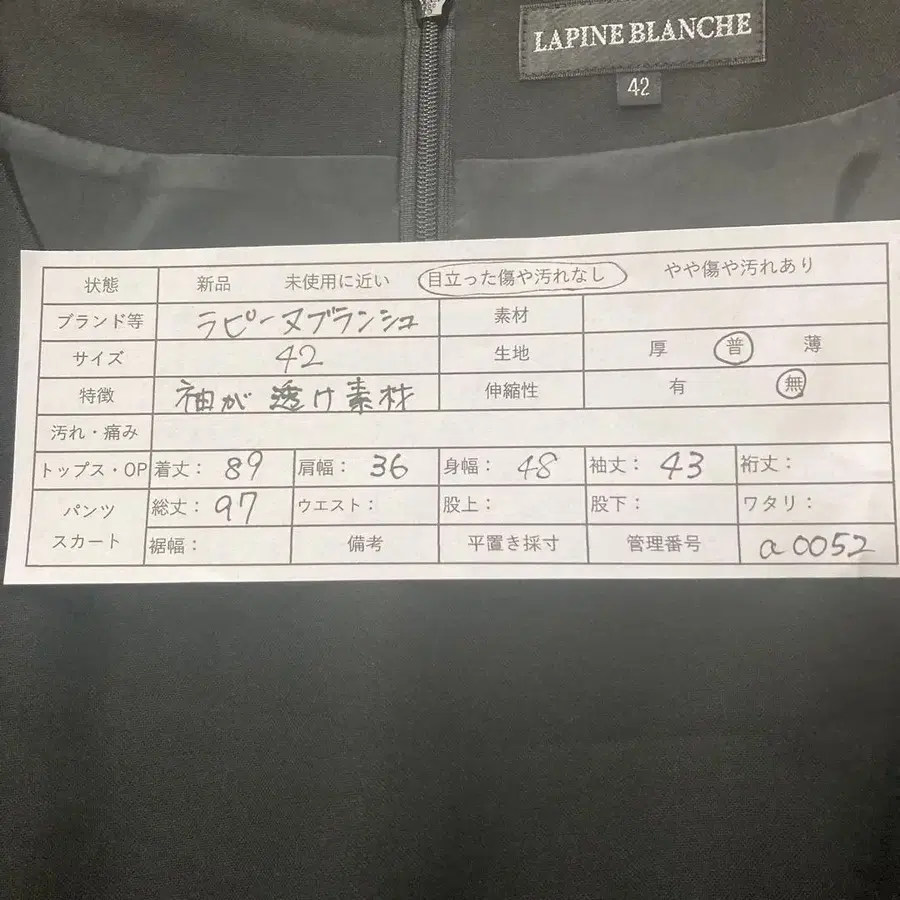 LAPINE BLANCHE
42
状態 新品 未使用に近い 目立った傷や汚れなし やや傷や汚れあり
ブランド等 ラピーヌブランシュ 素材
サイズ 42 生地 厚 普 薄
特徴 袖が透け素材 伸縮性 有 無
汚れ・痛み
トップス・OP 着丈: 89 肩幅: 36 身幅: 48 袖丈: 43 裄丈:
パンツ 総丈: 97 ウエスト: 股上: 股下: ワタリ:
スカート 裾幅: 備考 平置き採寸 管理番号 a0052